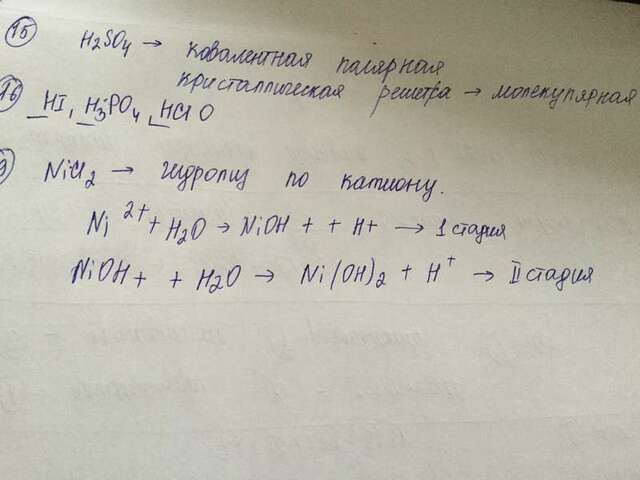 1б H2SO4 → ковалентная палярная
кристаллическая решетка → молекулярная
HI, H3PO4, HClO
NiCl2 → гидролиз по катиону.
Ni2+ + H2O → NiOH + + H+ → I стадия
NiOH+ + H2O → Ni(OH)2 + H+ → II стадия